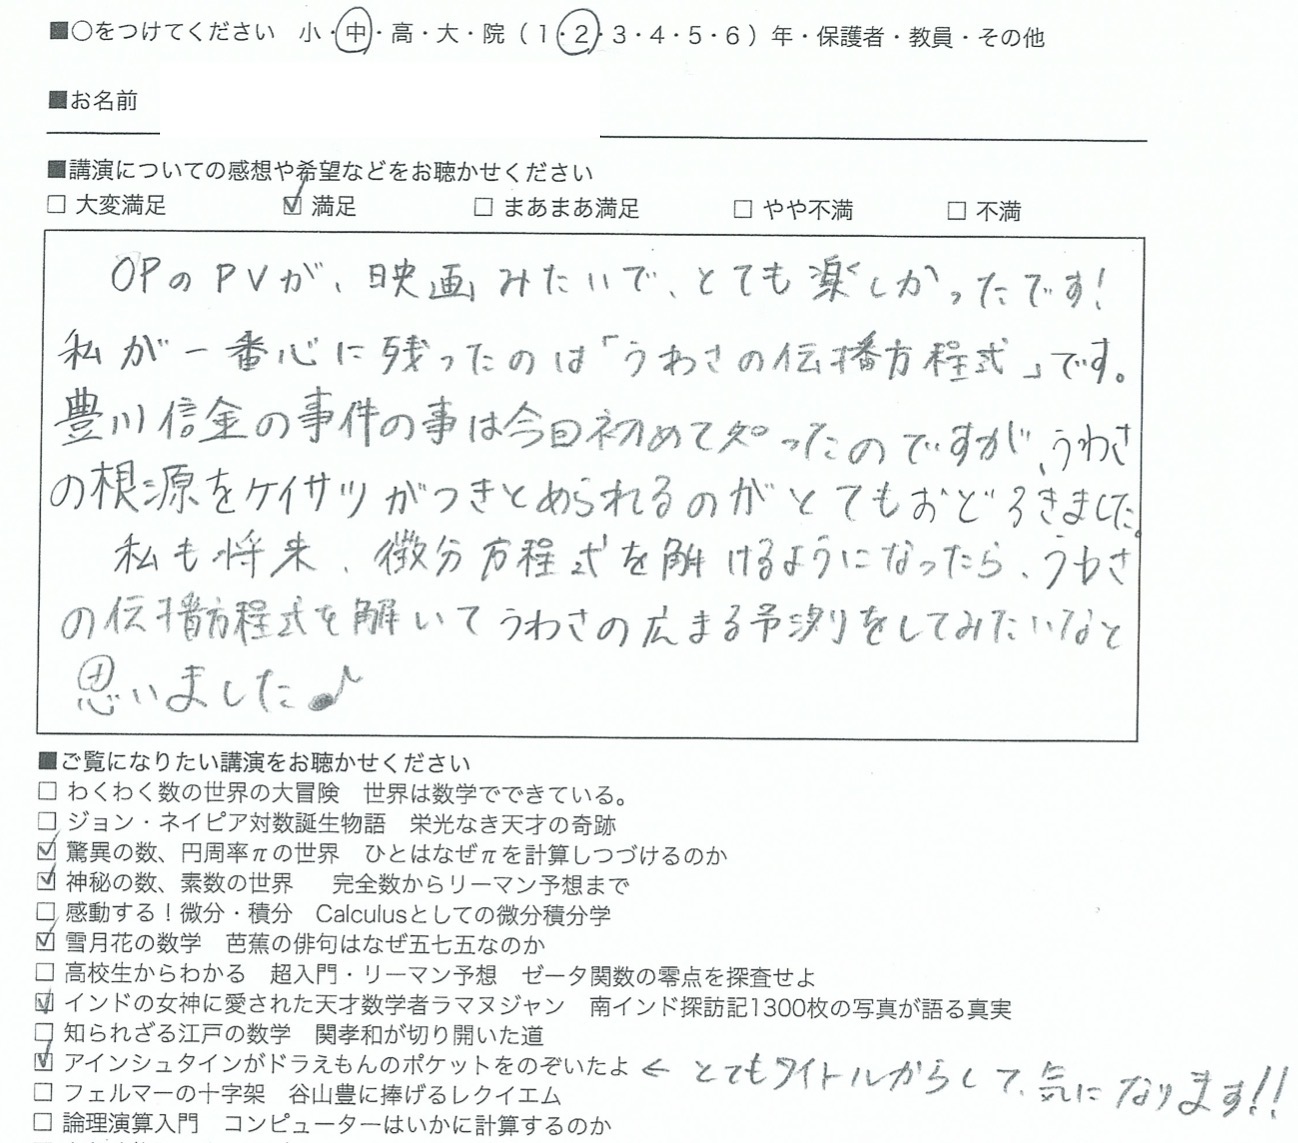 ■○をつけてください 小・中・高・大・院（1・2・3・4・5・6）年・保護者・教員・その他
■お名前
■講演についての感想や希望などをお聴かせください
□ 大変満足 ☑ 満足 □ まあまあ満足 □ やや不満 □ 不満
OPのPVが、映画みたいで、とても楽しかったです!
私が一番心に残ったのは「うわさの伝播方程式」です。
豊川信金の事件の事は今回初めて知ったのですが、うわさ
の根源をケイサツがつきとめられるのがとてもおどろきました。
私も将来、微分方程式を解けるようになったら、うわさ
の伝播方程式を解いてうわさの広まる予測りをしてみたいなと
思いました♪
■ご覧になりたい講演をお聴かせください
□ わくわく数の世界の大冒険 世界は数学でできている。
□ ジョン・ネイピア対数誕生物語 栄光なき天才の奇跡
☑ 驚異の数、円周率πの世界 ひとはなぜπを計算しつづけるのか
☑ 神秘の数、素数の世界 完全数からリーマン予想まで
□ 感動する！微分・積分 Calculusとしての微分積分学
☑ 雪月花の数学 芭蕉の俳句はなぜ五七五なのか
□ 高校生からわかる 超入門・リーマン予想 ゼータ関数の零点を探査せよ
☑ インドの女神に愛された天才数学者ラマヌジャン 南インド探訪記1300枚の写真が語る真実
□ 知られざる江戸の数学 関孝和が切り開いた道
☑ アインシュタインがドラえもんのポケットをのぞいたよ ← とてもタイトルからして、気になります!!
□ フェルマーの十字架 谷山豊に捧げるレクイエム
□ 論理演算入門 コンピューターはいかに計算するのか